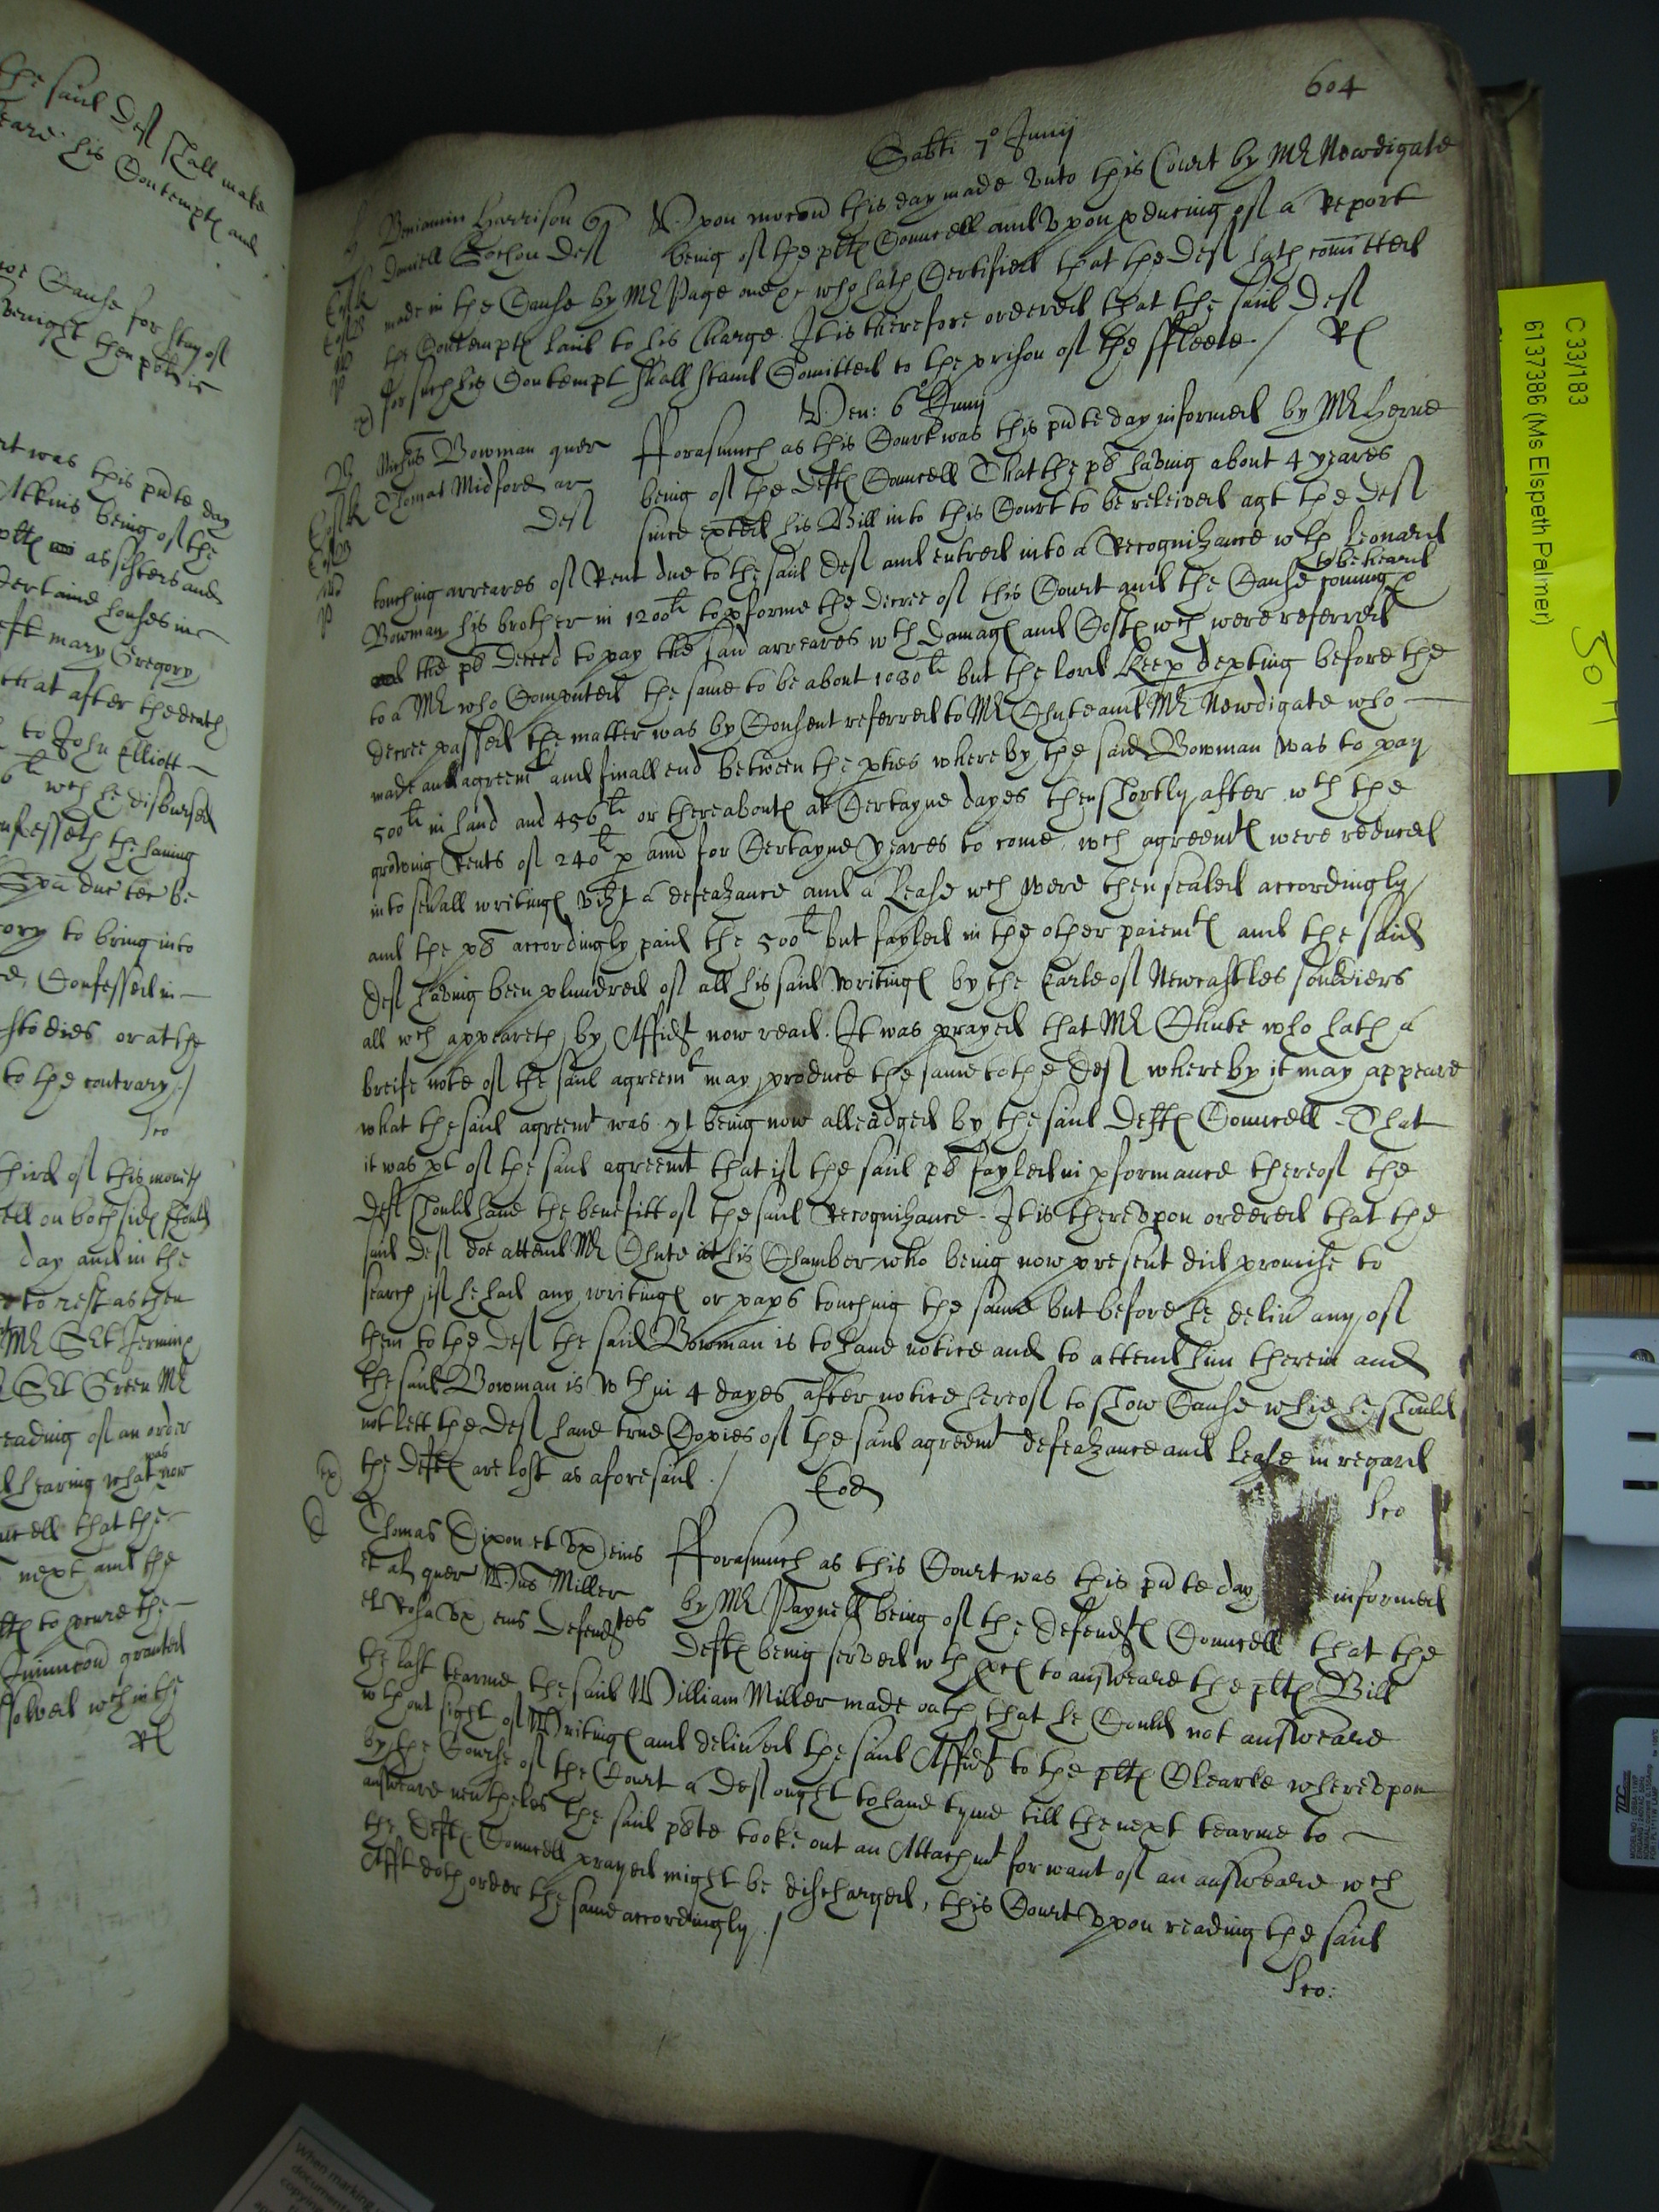 the said Deft shall make
his Contempte and
Cause for stay of
then pties
rt was this pnte day
Atkins being of the
pltes as sisters and
Certaine houses in
eft mary Gregory
that after the death
to John Elliott
li wch he disbursed
confesseth the having
due tee be
ory to bring into
Confessed in
stodies or at the
to the contrary /
Leo
hird of this month
ell on both sides should
day and in the
to rest as then
Mr Sert Jermin
Sert Green Mr
eading of an order
hearing what was now
cell that the
next and the
to pcure the
Iniuncon granted
solved wthin the
Rl
604
Sabti 7o Junij
Beniamin Harrison qr
Daniell Cochon Deft
Vpon mocon this day made vnto this Court by Mr Newdigate
being of the plts Councell and vpon pducing of a Report
made in the Cause by Mr Page one &c who hath Certified that the Deft hath comitted
the Contempte laid to his Charge. It is therefore ordered that the said Deft
for such his Contempt shall stand Comitted to the prison of the ffleete / Rl
Ven: 6o Junij
Michus Bowman quer
Thomas Midford ar
Deft
fforasmuch as this Court was this pnte day informed by Mr Herne
being of the Defts Councell That the pt having about 4 yeares
since exted his Bill into this Court to be releived agt the Deft
touching arreares of Rent due to the said Deft and entred into a Recognizance wth Leonard
Bowman his brother in 1200li to pforme the decree of this Court and the Cause coming to be heard
the pt decreed to pay the said arreares wth damages and Costes wch were referred
to a Mr who Computed the same to be about 1030li but the lord Keep depting before the
decree passed the matter was by Consent referred to Mr Chute and Mr Newdigate who
made an agreemt and finall end between the pties whereby the said Bowman was to pay
500li in hand and 456li or thereaboutes at Certayne dayes then shortly after wth the
growing Rents of 240li p ann for Certayne yeares to come wch agreemtes were reduced
into seuall writinges vizt a defeazance and a Lease wch were then sealed accordingly
and the pt accordingly paid the 500li but fayled in the other paiemtes and the said
Deft having been plundred of all his said writinges by the Earle of Newcastles souldiers
all wch appeareth by Affidt now read. It was prayed that Mr Chute who hath a
breife note of the said agreemt may produce the same to the Deft whereby it may appeare
what the said agreemt was yt being now alleadged by the said Defts Councell That
it was pt of the said agreemt that if the said pt fayled in pformance thereof the
Deft should haue the benefitt of the said Recognizance. It is therevpon ordered that the
said Deft doe attend Mr Chute at his Chamber who being now present did promise to
search if he had any writinges or paps touching the same but before he deliu any of
them to the Deft the said Bowman is to haue notice and to attend him therein and
the said Bowman is wthin 4 dayes after notice hereof to show Cause whie he should
not lett the Deft haue true Copies of the said agreemt defeazance and lease in regard
the Defts are lost as aforesaid / Leo
Thomas Dixon et vx eius
et al quer Wus Miller
et Rosa vx eius Defendtes
fforasmuch as this Court was this pnte day informed
by Mr Paynell being of the Defendtes Councell that the
Defts being served wth pces to answeare the pltes Bill
the last tearme the said William Miller made oath that he Could not answeare
wthout sight of Writinges and deliued the said Affidt to the pltes Clearke wherevpon
by the Course of the Court a Deft ought to haue tyme till the next tearme to
answeare neutheles the said pte tooke out an Attachmt for want of an answeare wch
the Defts Councell prayed might be discharged, this Court vpon reading the said
Afft doth order the same accordingly /
Leo:
C 33/183
6137386 (Ms Elspeth Palmer)
When marking